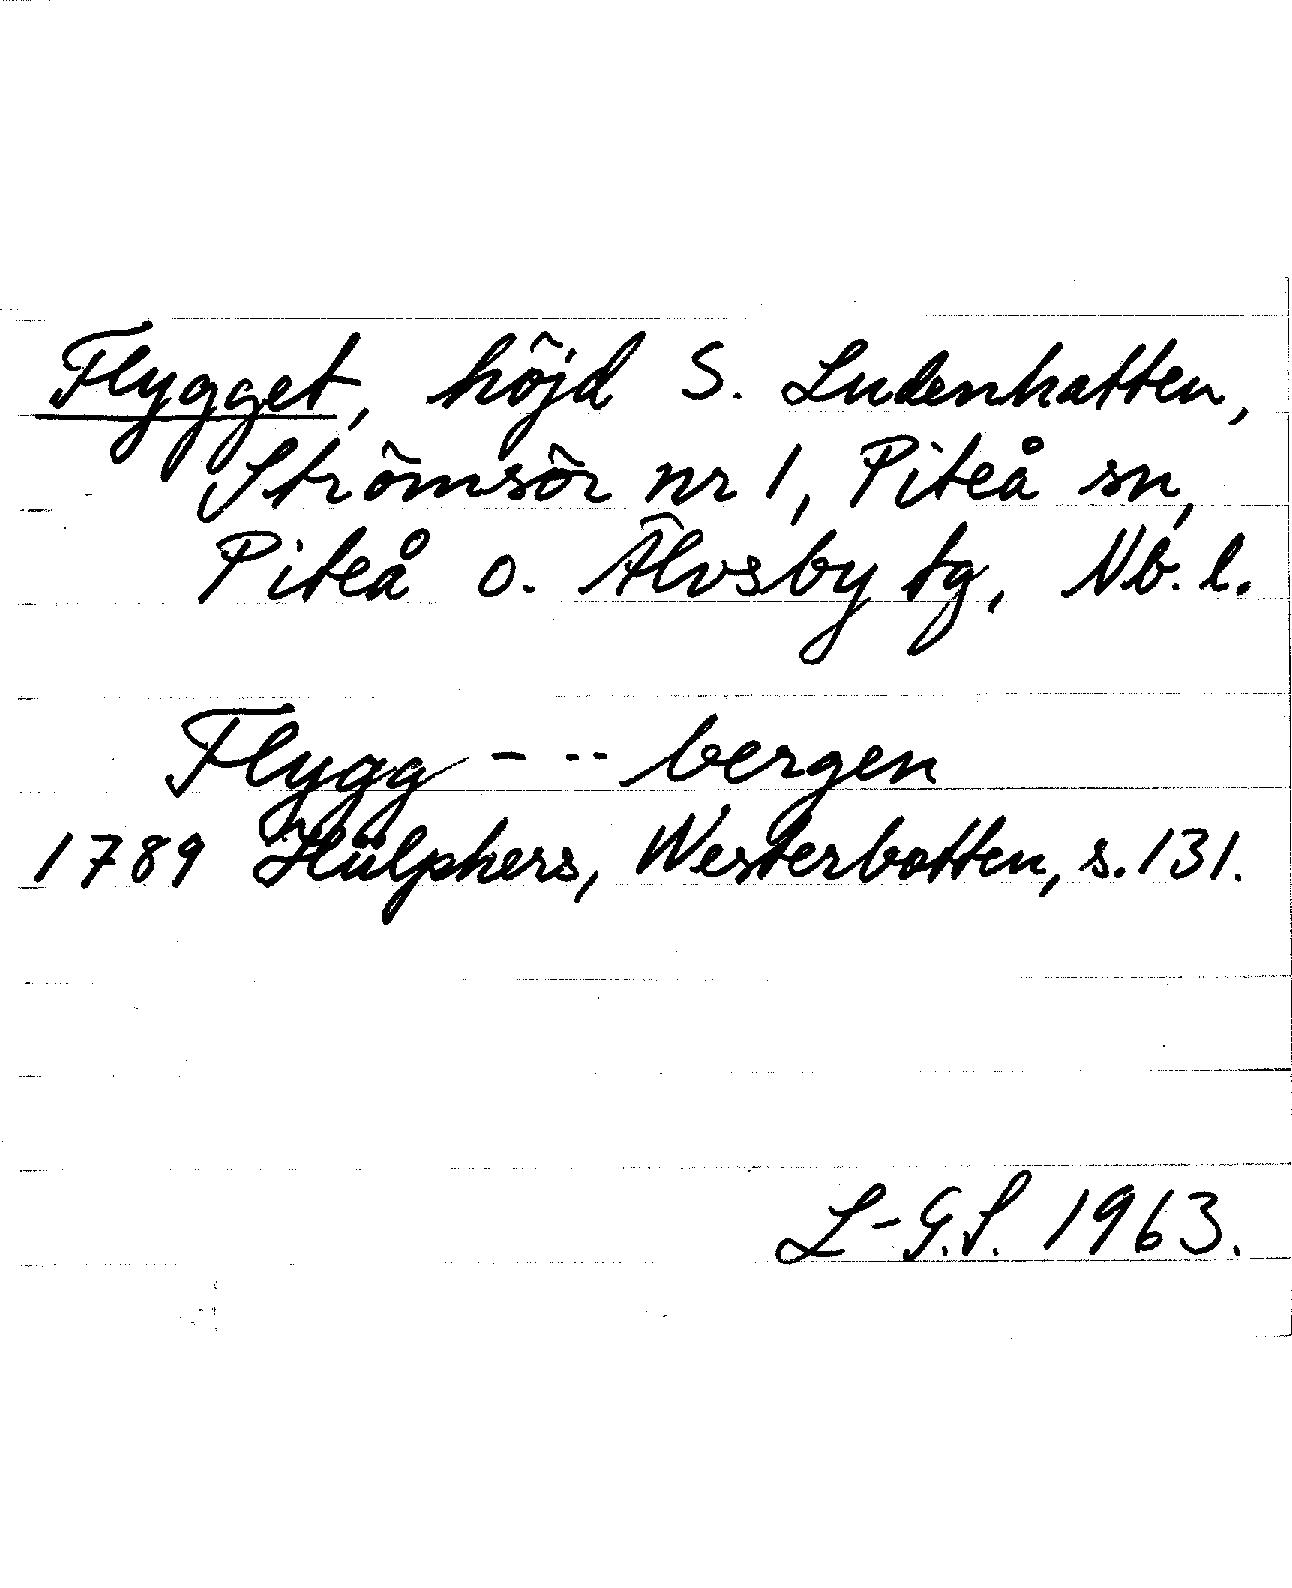 Flygget, höjd S. Ludenhatten,
Strömsör nr 1, Piteå sn,
Piteå o. Älvsby tg, Nb. l.
Flygg - -- bergen
1789 Hülphers, Westerbotten, s. 131.
L-G.S. 1963.